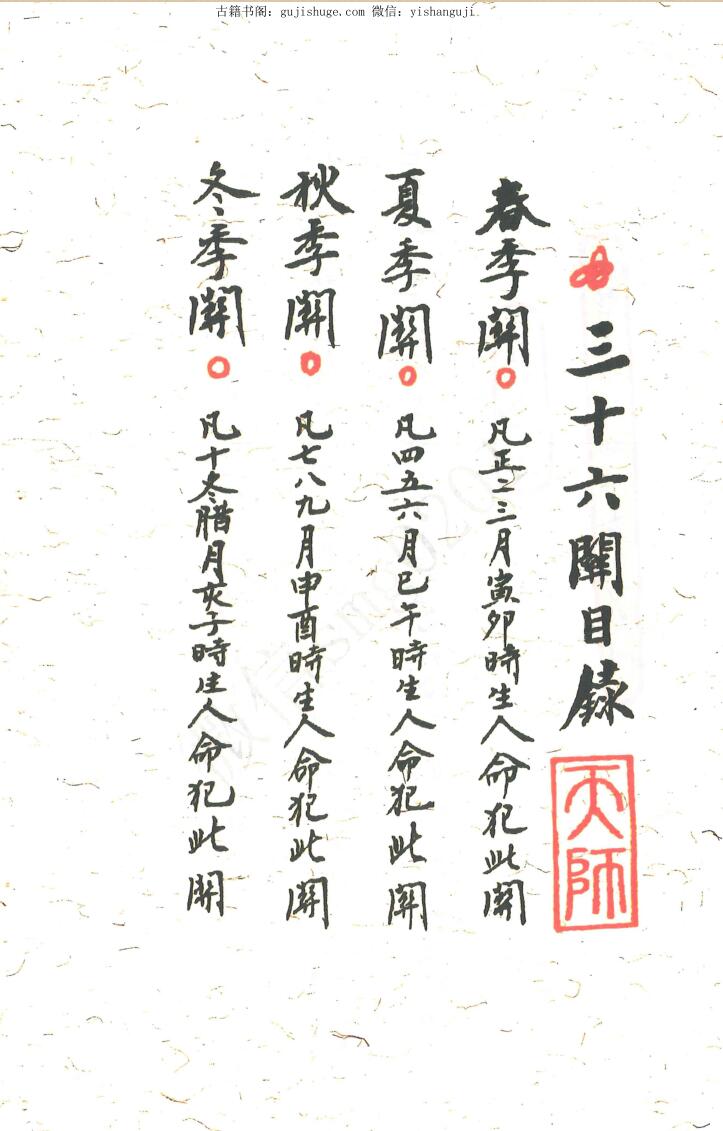 古籍书阁: gujishuge.com 微信: yishanguji
三十六關目録
天師
春季關
凡正二三月寅卯時生人命犯此關
夏季關
凡四五六月巳午時生人命犯此關
秋季關
凡七八九月申酉時生人命犯此關
冬季關
凡十冬腊月亥子時生人命犯此關